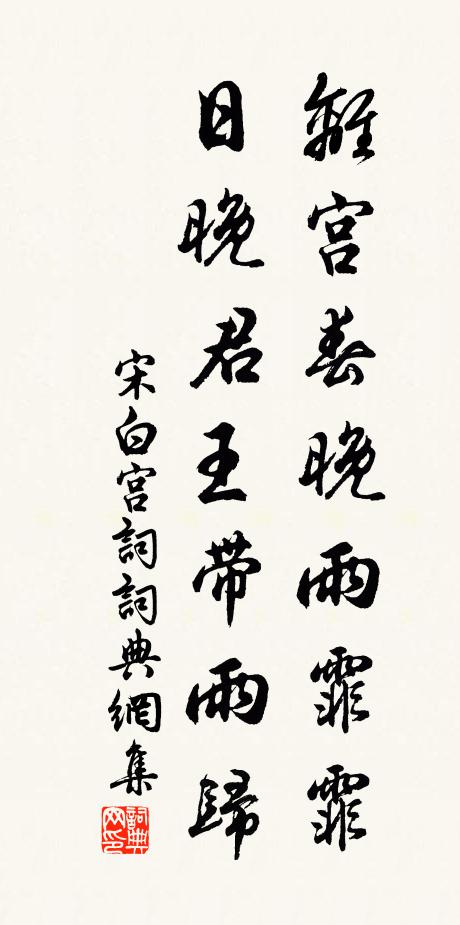 離宮春晚雨霏霏
日晚君王帶雨歸
宋白宮詞詞典網集
詞典网印